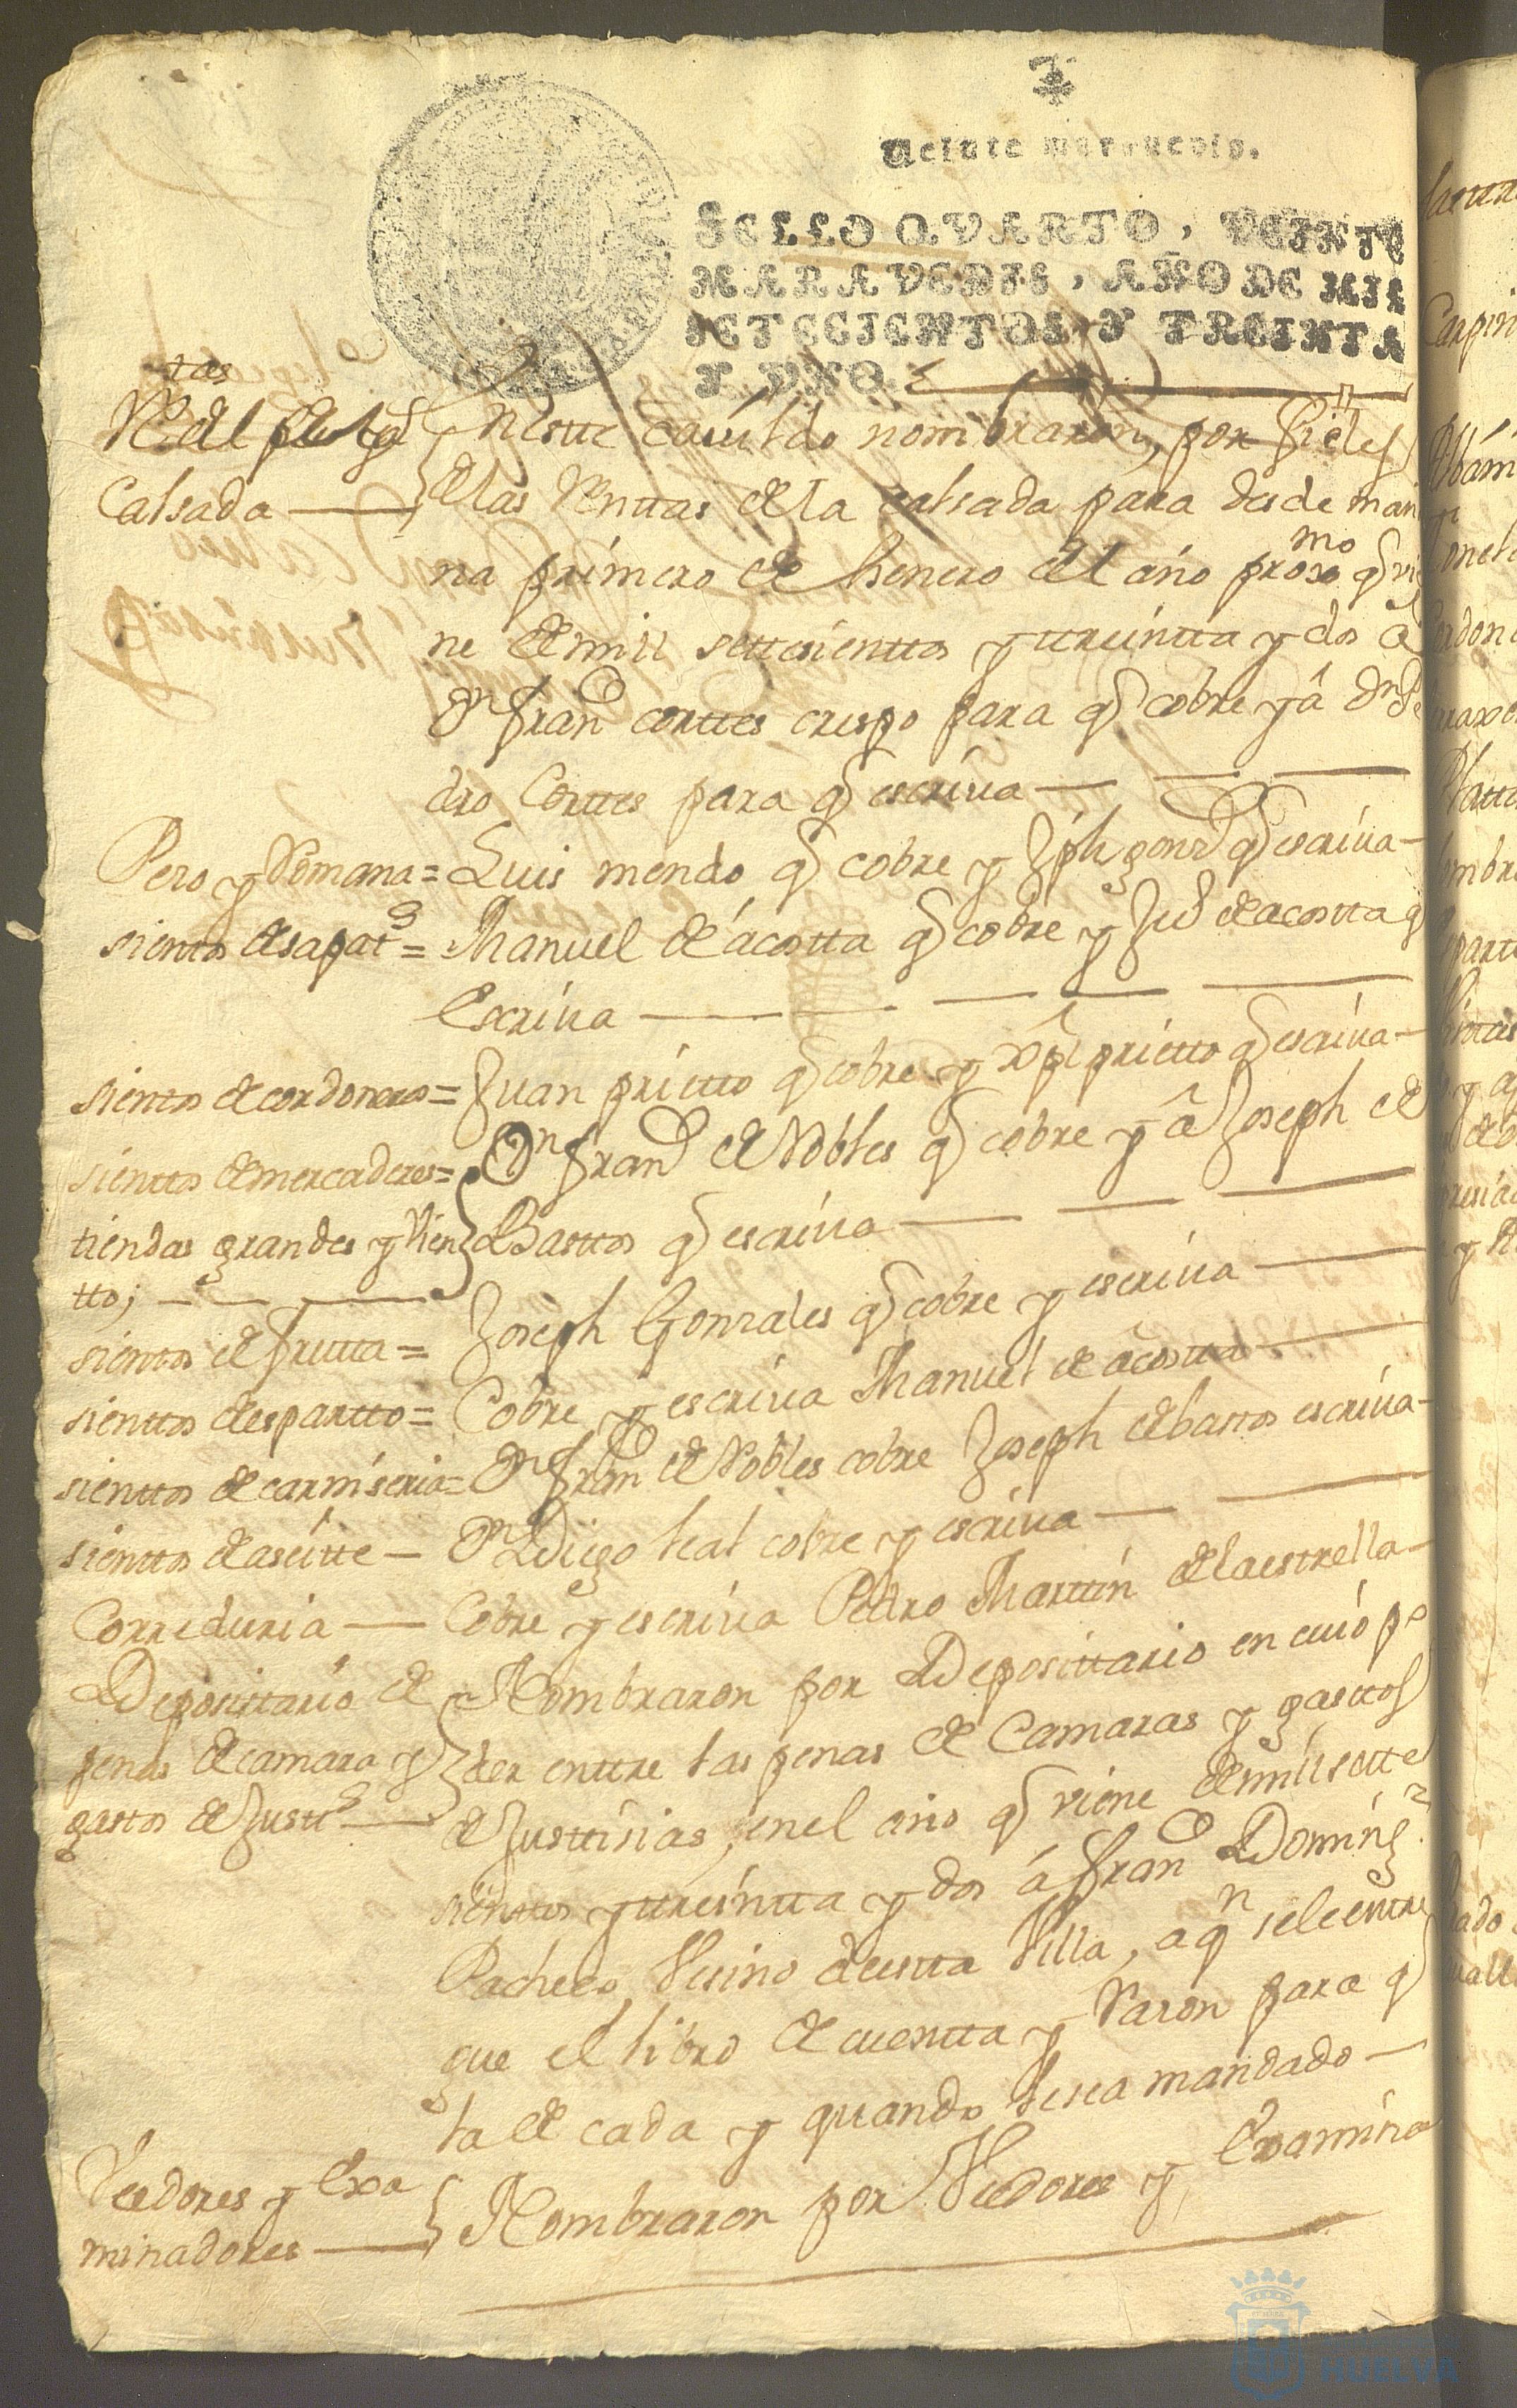 Veinte maravedis.
SELLO QVARTO, VEINTE
MARAVEDIS, AÑO DE MIL
SETECIENTOS Y TREINTA
Y VNO.
Calsada
Neste cauildo nombraron, por fieles
de las Renttas de la calsada para desde mañ
na primero de henero del año proxmo q vie
ne de mill settesienttos y treintta y dos a
Dn franco corttes crespo para q cobre y â Dn Pe
dro Corttes para q escriua
Pero y Romana = Luis mendo q cobre y Jph gonz q escriua
sientos de sapats = Manuel de ácostta q cobre y Ju de acostta q
Escriua
sientos de cordonero = Juan prietto q cobre y xpl prietto q escriua
sienttos de mercaderes = Dn franco de Nobles q cobre y â Joseph de
tiendas grandes y Vien
Basttos q escriua
tto;
sientos de frutta = Joseph Gonzales q cobre y escriua
sienttos de espartto = Cobre y escriua Manuel de âcostta
sienttos de carniseria = Dn franco de Nobles cobre Joseph de bastos escriua
sientto de aseitte — Dn Diego leal cobre y escriua
Correduria — Cobre y escriua Pedro Marttin de la estrella
Deposittario de
penas de camara y
gastos de Justts
Nombraron por Deposittario en cuio po
der enttre las penas de Camaras y gasttos
de Justtisias, en el año q viene de mil sette
sienttos y treintta y dos á franco Doming
Pacheco Vesino de estta Villa, a qn se le entre
gue el libro de cuentta y Razon para q
la de cada y quando le sea mandado
Veedores y Exa
minadores
Nombraron por Veedores y Examina
HUELVA